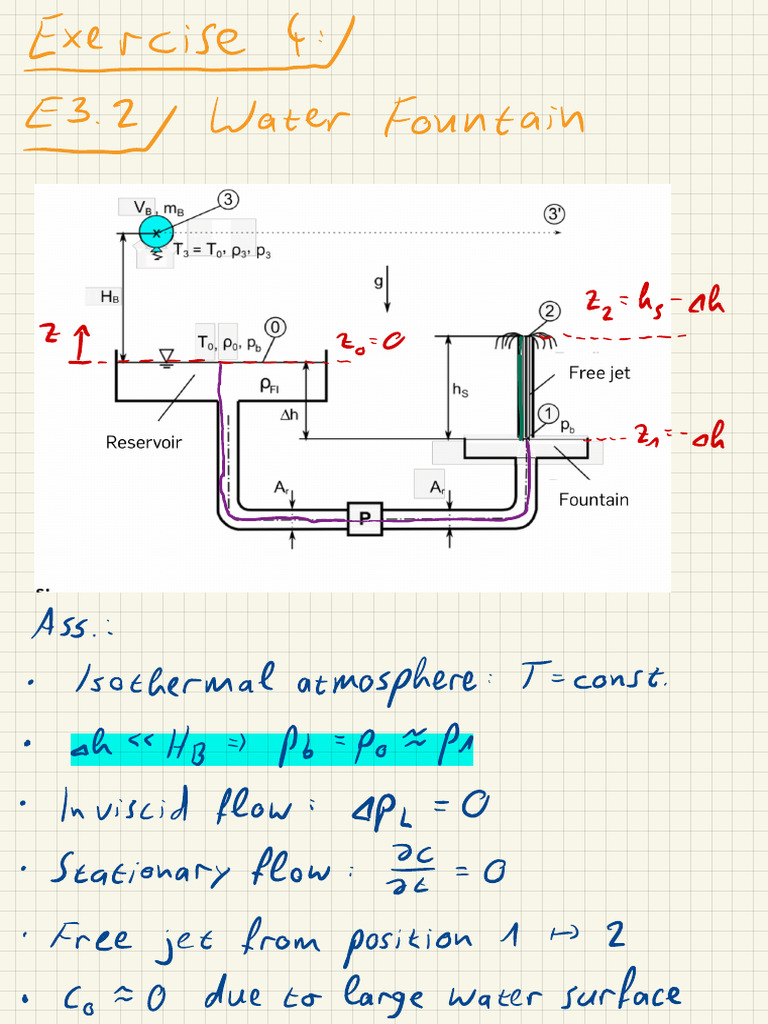 Exercise 4:
E3.2 Water Fountain
V_B, m_B
3
3'
T_3 = T_0, ρ_3, p_3
g
H_B
z
T_0, ρ_0, p_b
0
z_0 = 0
2
z_2 = h_s - Δh
ρ_Fl
h_S
Free jet
Δh
1
p_b
z_1 = -Δh
Reservoir
A_r
A_r
P
Fountain
Ass.:
• Isothermal atmosphere: T = const.
• Δh << H_B => p_b = p_0 ≈ p_1
• Inviscid flow: Δp_L = 0
• Stationary flow: ∂c/∂t = 0
• Free jet from position 1 ↦ 2
• c_0 ≈ 0 due to large water surface